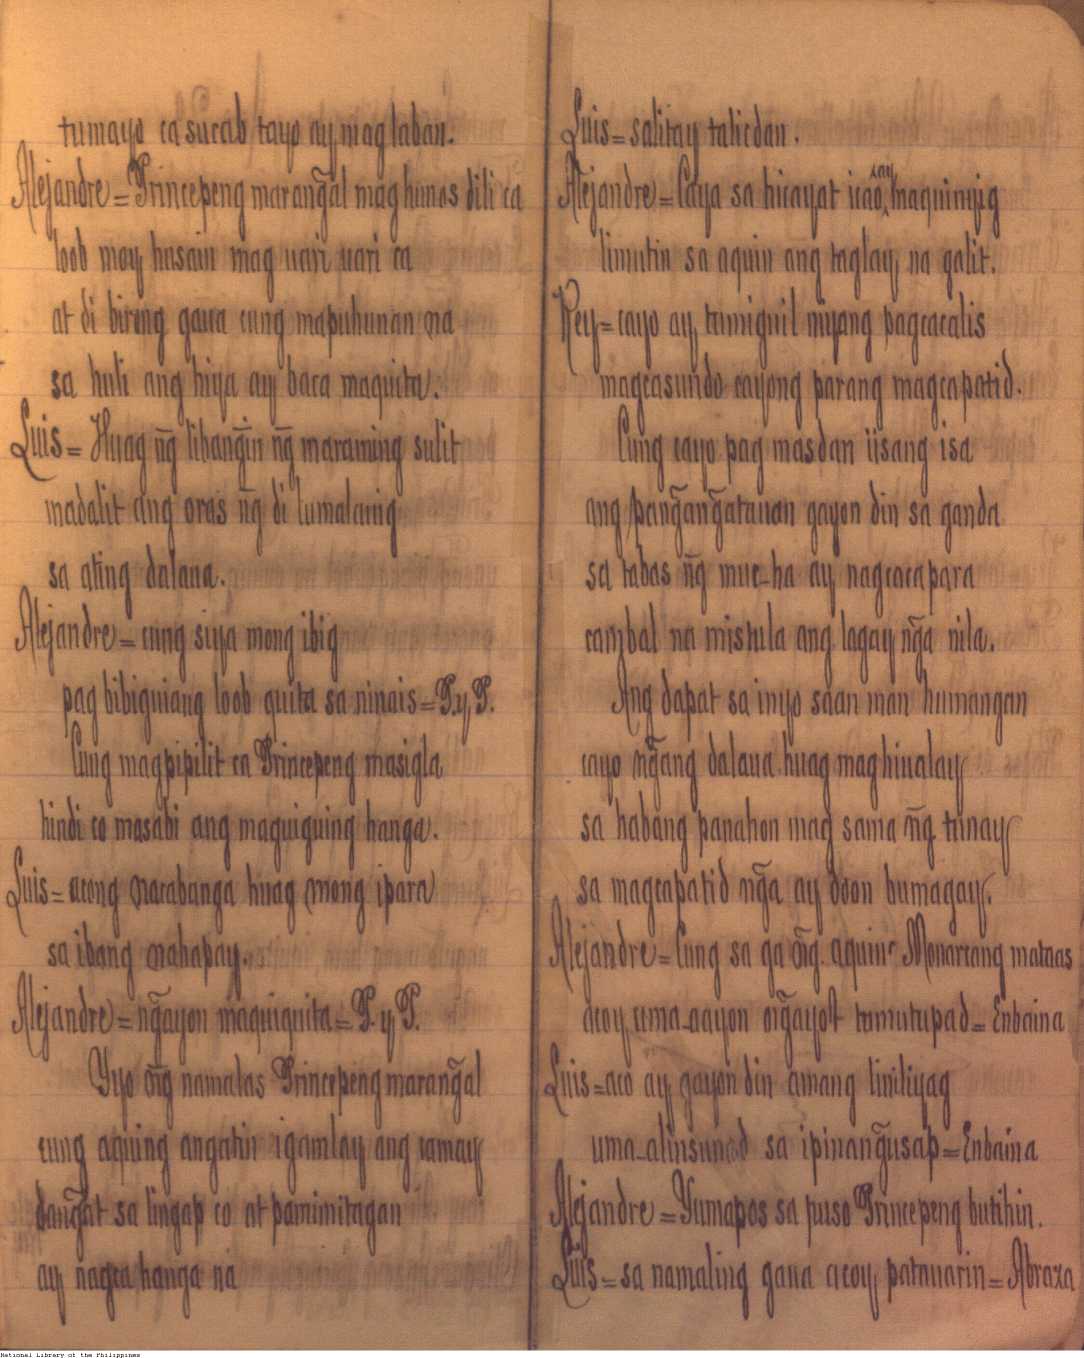 tumayo ca sucab tayo ay maglaban.
Alejandre = Princepeng marang̃al mag hunos dili ca
loob moy husain mag uari uari ca
at di birong gaua cung mapuhunan na
sa huli ang hiya ay baca maquita.
Luis = Huag ng̃ libang̃in ng̃ maraming sulit
madalit ang oras ng̃ di lumalaing
sa ating dalaua.
Alejandre = cung siya mong ibig
pag bibiguiang loob quita sa ninais = P. y P.
Cung magpipilit ca Princepeng masigla
hindi co masabi ang maguiguing hanga.
Luis = acong nacabanga huag mong ipara
sa ibang nahapay.
Alejandre = ng̃ayon maquiquita = P. y P.
Yyo ng̃ namalas Princepeng marang̃al
cung aquing angatin igamlay ang camay
dang̃at sa lingap co at pamimitagan
ay nagca hanga na
Luis = salitay tahicdan.
Alejandre = Caya sa hicayat icao ay maquiniyig
limutin sa aquin ang taglay na galit.
Rey = cayo ay tumiguil niyang pagcacalis
magcasundo cayong parang magcapatid.
Cung cayo pag masdan iisang isa
ang pang̃ang̃atauan gayon din sa ganda
sa tabas ng̃ muc-ha ay nagcacapara
cambal na mistula ang lagay ng̃a nila.
Ang dapat sa inyo saan man humangan
cayo ng̃ang dalaua huag maghiualay
sa habang panahon mag sama ng̃ tunay
sa magcapatid ng̃a ay doon bumagay.
Alejandre = Cung sa ga ng̃. aquing Monarcang mataas
acoy uma-aayon tumutupad = Enbaina
Luis = aco ay gayon din amang liniliyag
uma-alinsunod sa ipinang̃usap = Enbaina
Alejandre = Yumapos sa puso Princepeng butihin.
Luis = sa namaling gaua acoy patauarin = Abraza
National Library of the Philippines